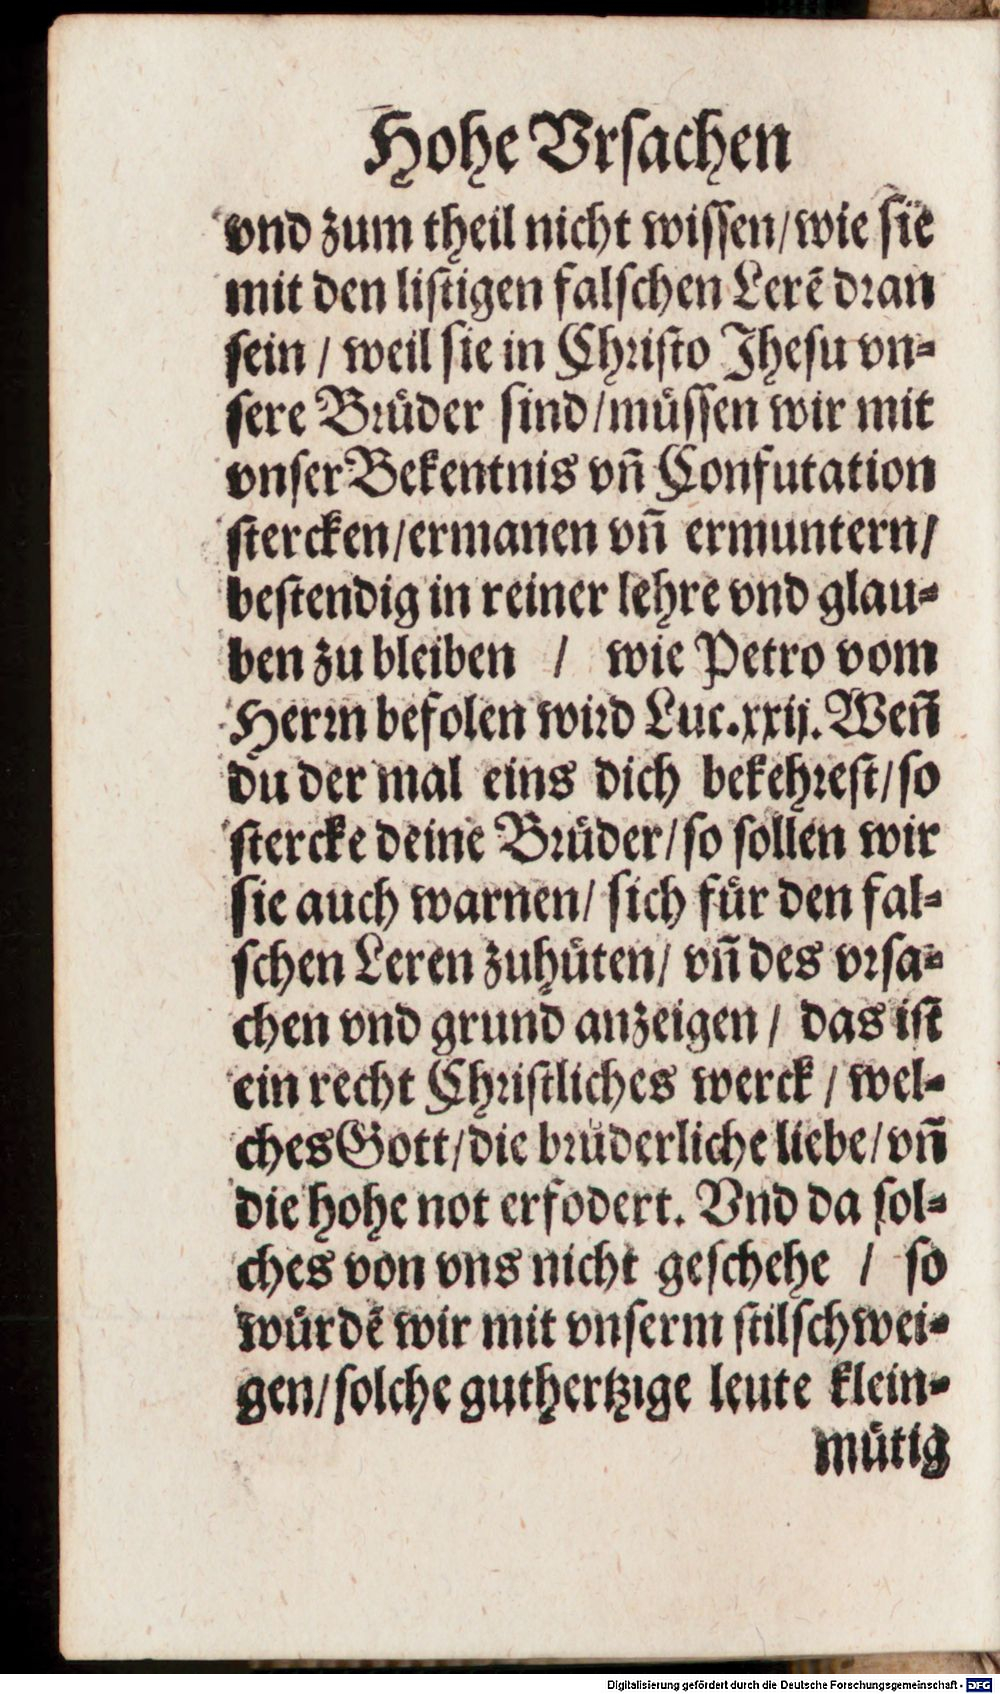 Hohe Vrsachen
vnd zum theil nicht wissen/ wie sie
mit den listigen falschen Lerẽ dran
sein / weil sie in Christo Jhesu vn⸗
sere Bruͤder sind/ muͤssen wir mit
vnser Bekentnis vñ Confutation
stercken/ ermanen vñ ermuntern/
bestendig in reiner lehre vnd glau⸗
ben zu bleiben / wie Petro vom
Herrn befolen wird Luc. xxij. Weñ
du der mal eins dich bekehrest/ so
stercke deine Bruͤder/ so sollen wir
sie auch warnen/ sich fuͤr den fal⸗
schen Leren zuhuͤten/ vñ des vrsa⸗
chen vnd grund anzeigen/ das ist
ein recht Christliches werck / wel⸗
ches Gott/ die bruͤderliche liebe/ vñ
die hohe not erfodert. Vnd da sol⸗
ches von vns nicht geschehe / so
wuͤrdẽ wir mit vnserm stilschwei⸗
gen/ solche guthertzige leute klein⸗
muͤtig
Digitalisierung gefördert durch die Deutsche Forschungsgemeinschaft - DFG